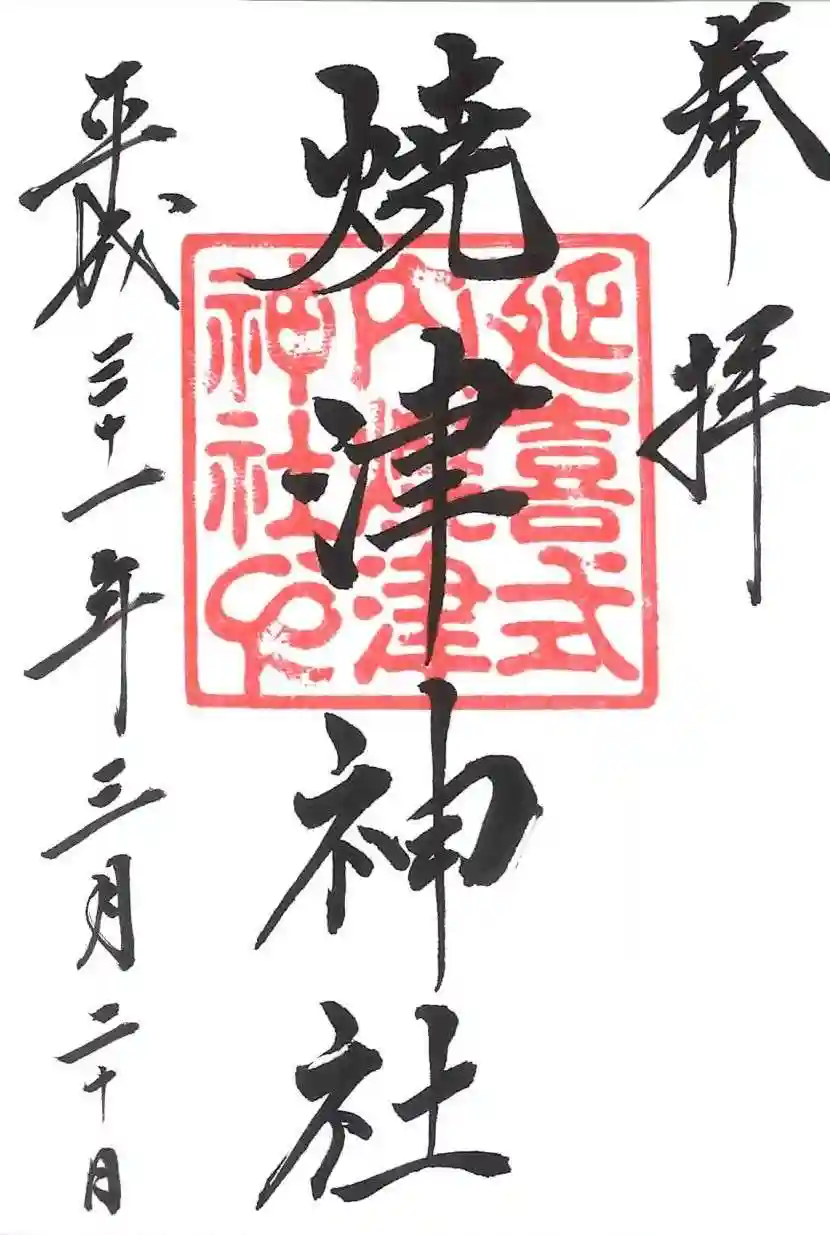 奉拝
焼津神社
平成三十一年三月二十日
延喜式
内焼津
神社印